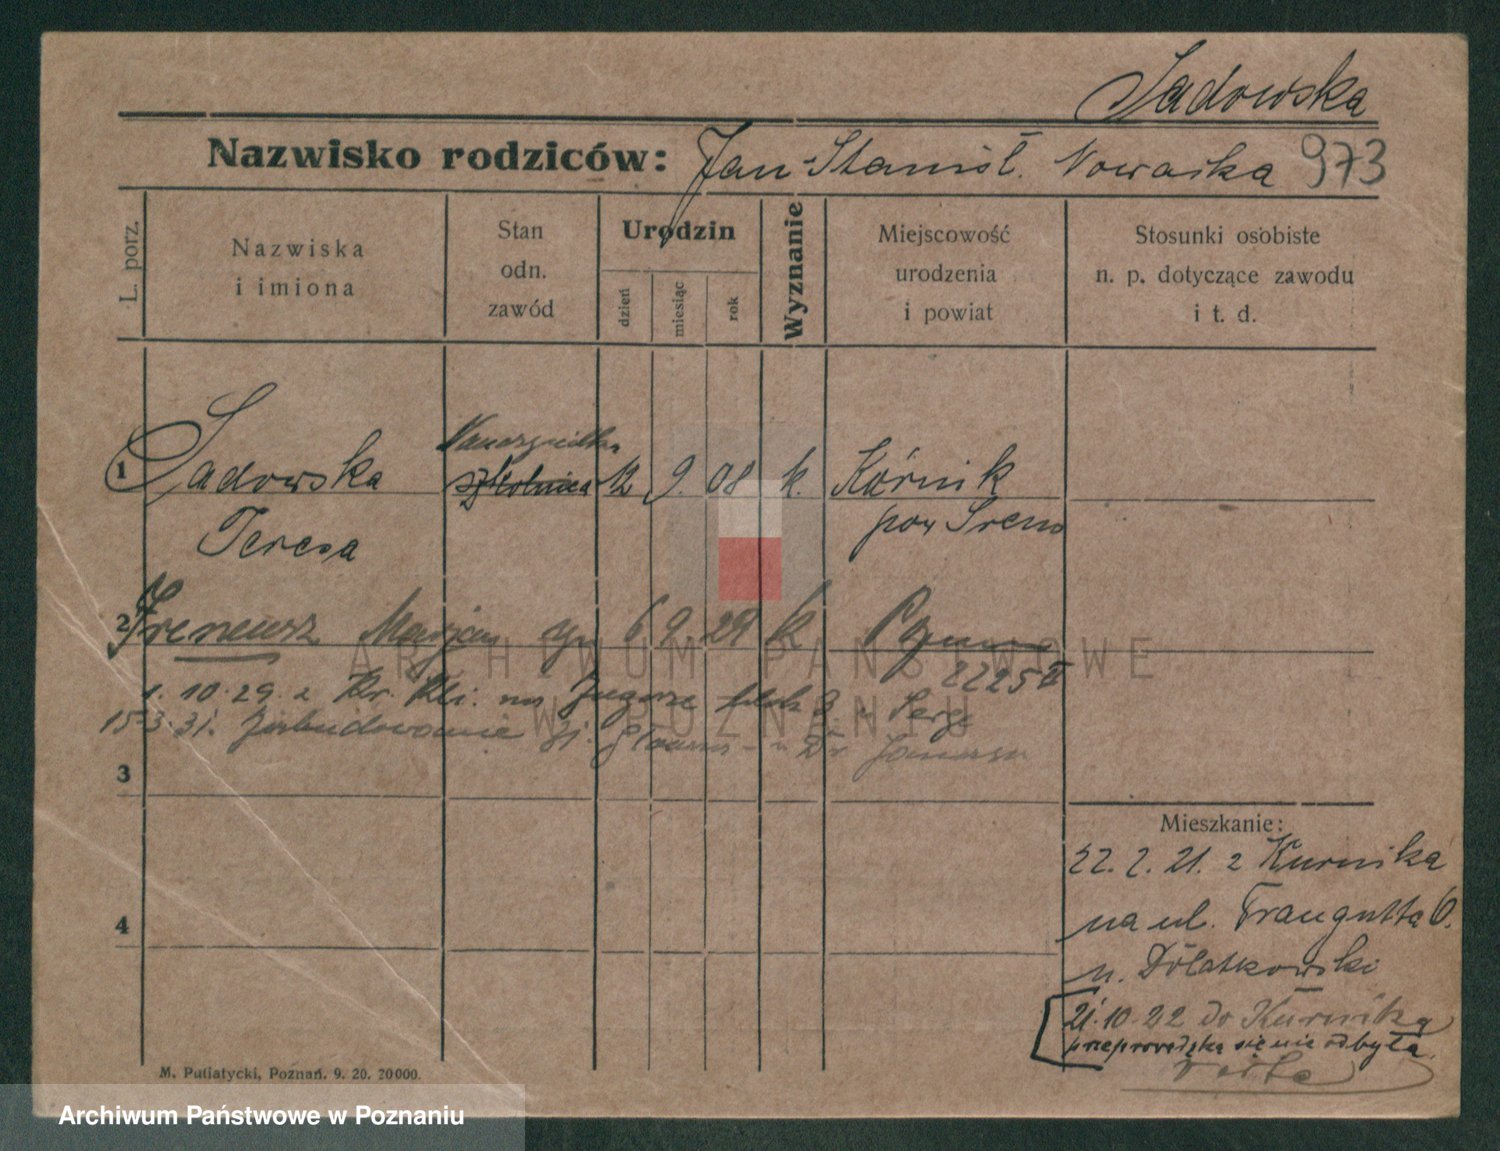 Sadowska
Nazwisko rodziców: Jan-Stanisł. Nowacka 973
L. porz.
Nazwiska
i imiona
Stan
odn.
zawód
Urodzin
dzień
miesiąc
rok
Wyznanie
Miejscowość
urodzenia
i powiat
Stosunki osobiste
n. p. dotyczące zawodu
i t. d.
Nauczycielka
1 Sadowska szkolnica 12 9. 08 k. Kórnik
Teresa pow Śrem
2 Ireneusz Marjan syn 6 9 29 k Poznań
2225 II
1. 10. 29. z
15.3.31.
3
4
Mieszkanie:
22. 2. 21. z Kurnika
na ul. Traugutta 6.
u. Dolatkowski
21. 10. 22 do Kurnika
przeprowadzka się nie odbyła.
M. Putiatycki, Poznań. 9. 20. 20000.
ARCHIWUM PAŃSTWOWE
W POZNANIU
Archiwum Państwowe w Poznaniu